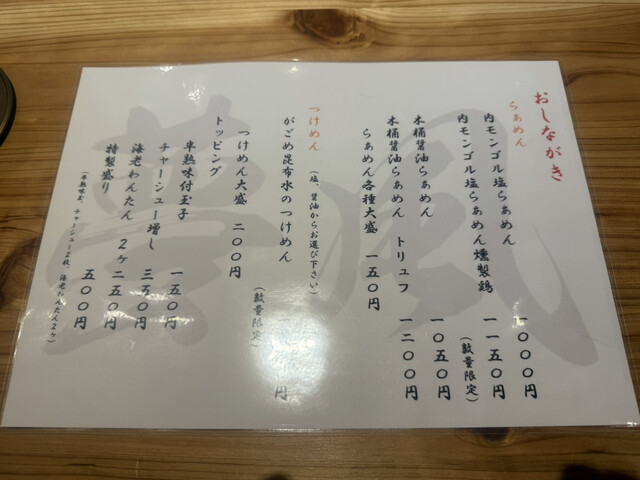 おしながき
らぁめん
内モンゴル塩らぁめん 一〇〇〇円
内モンゴル塩らぁめん燻製鶏 一一五〇円
(数量限定)
木桶醤油らぁめん 一〇五〇円
木桶醤油らぁめん トリュフ 一二〇〇円
らぁめん各種大盛 一五〇円
つけめん (塩、醤油からお選び下さい)
がごめ昆布水のつけめん 円
(数量限定)
つけめん大盛 二〇〇円
トッピング
半熟味付玉子 一五〇円
チャーシュー増し 三五〇円
海老わんたん 2ヶ 二五〇円
特製盛り 五〇〇円
(半熟味玉、チャーシュー2枚、海老わんたん2ヶ)
風